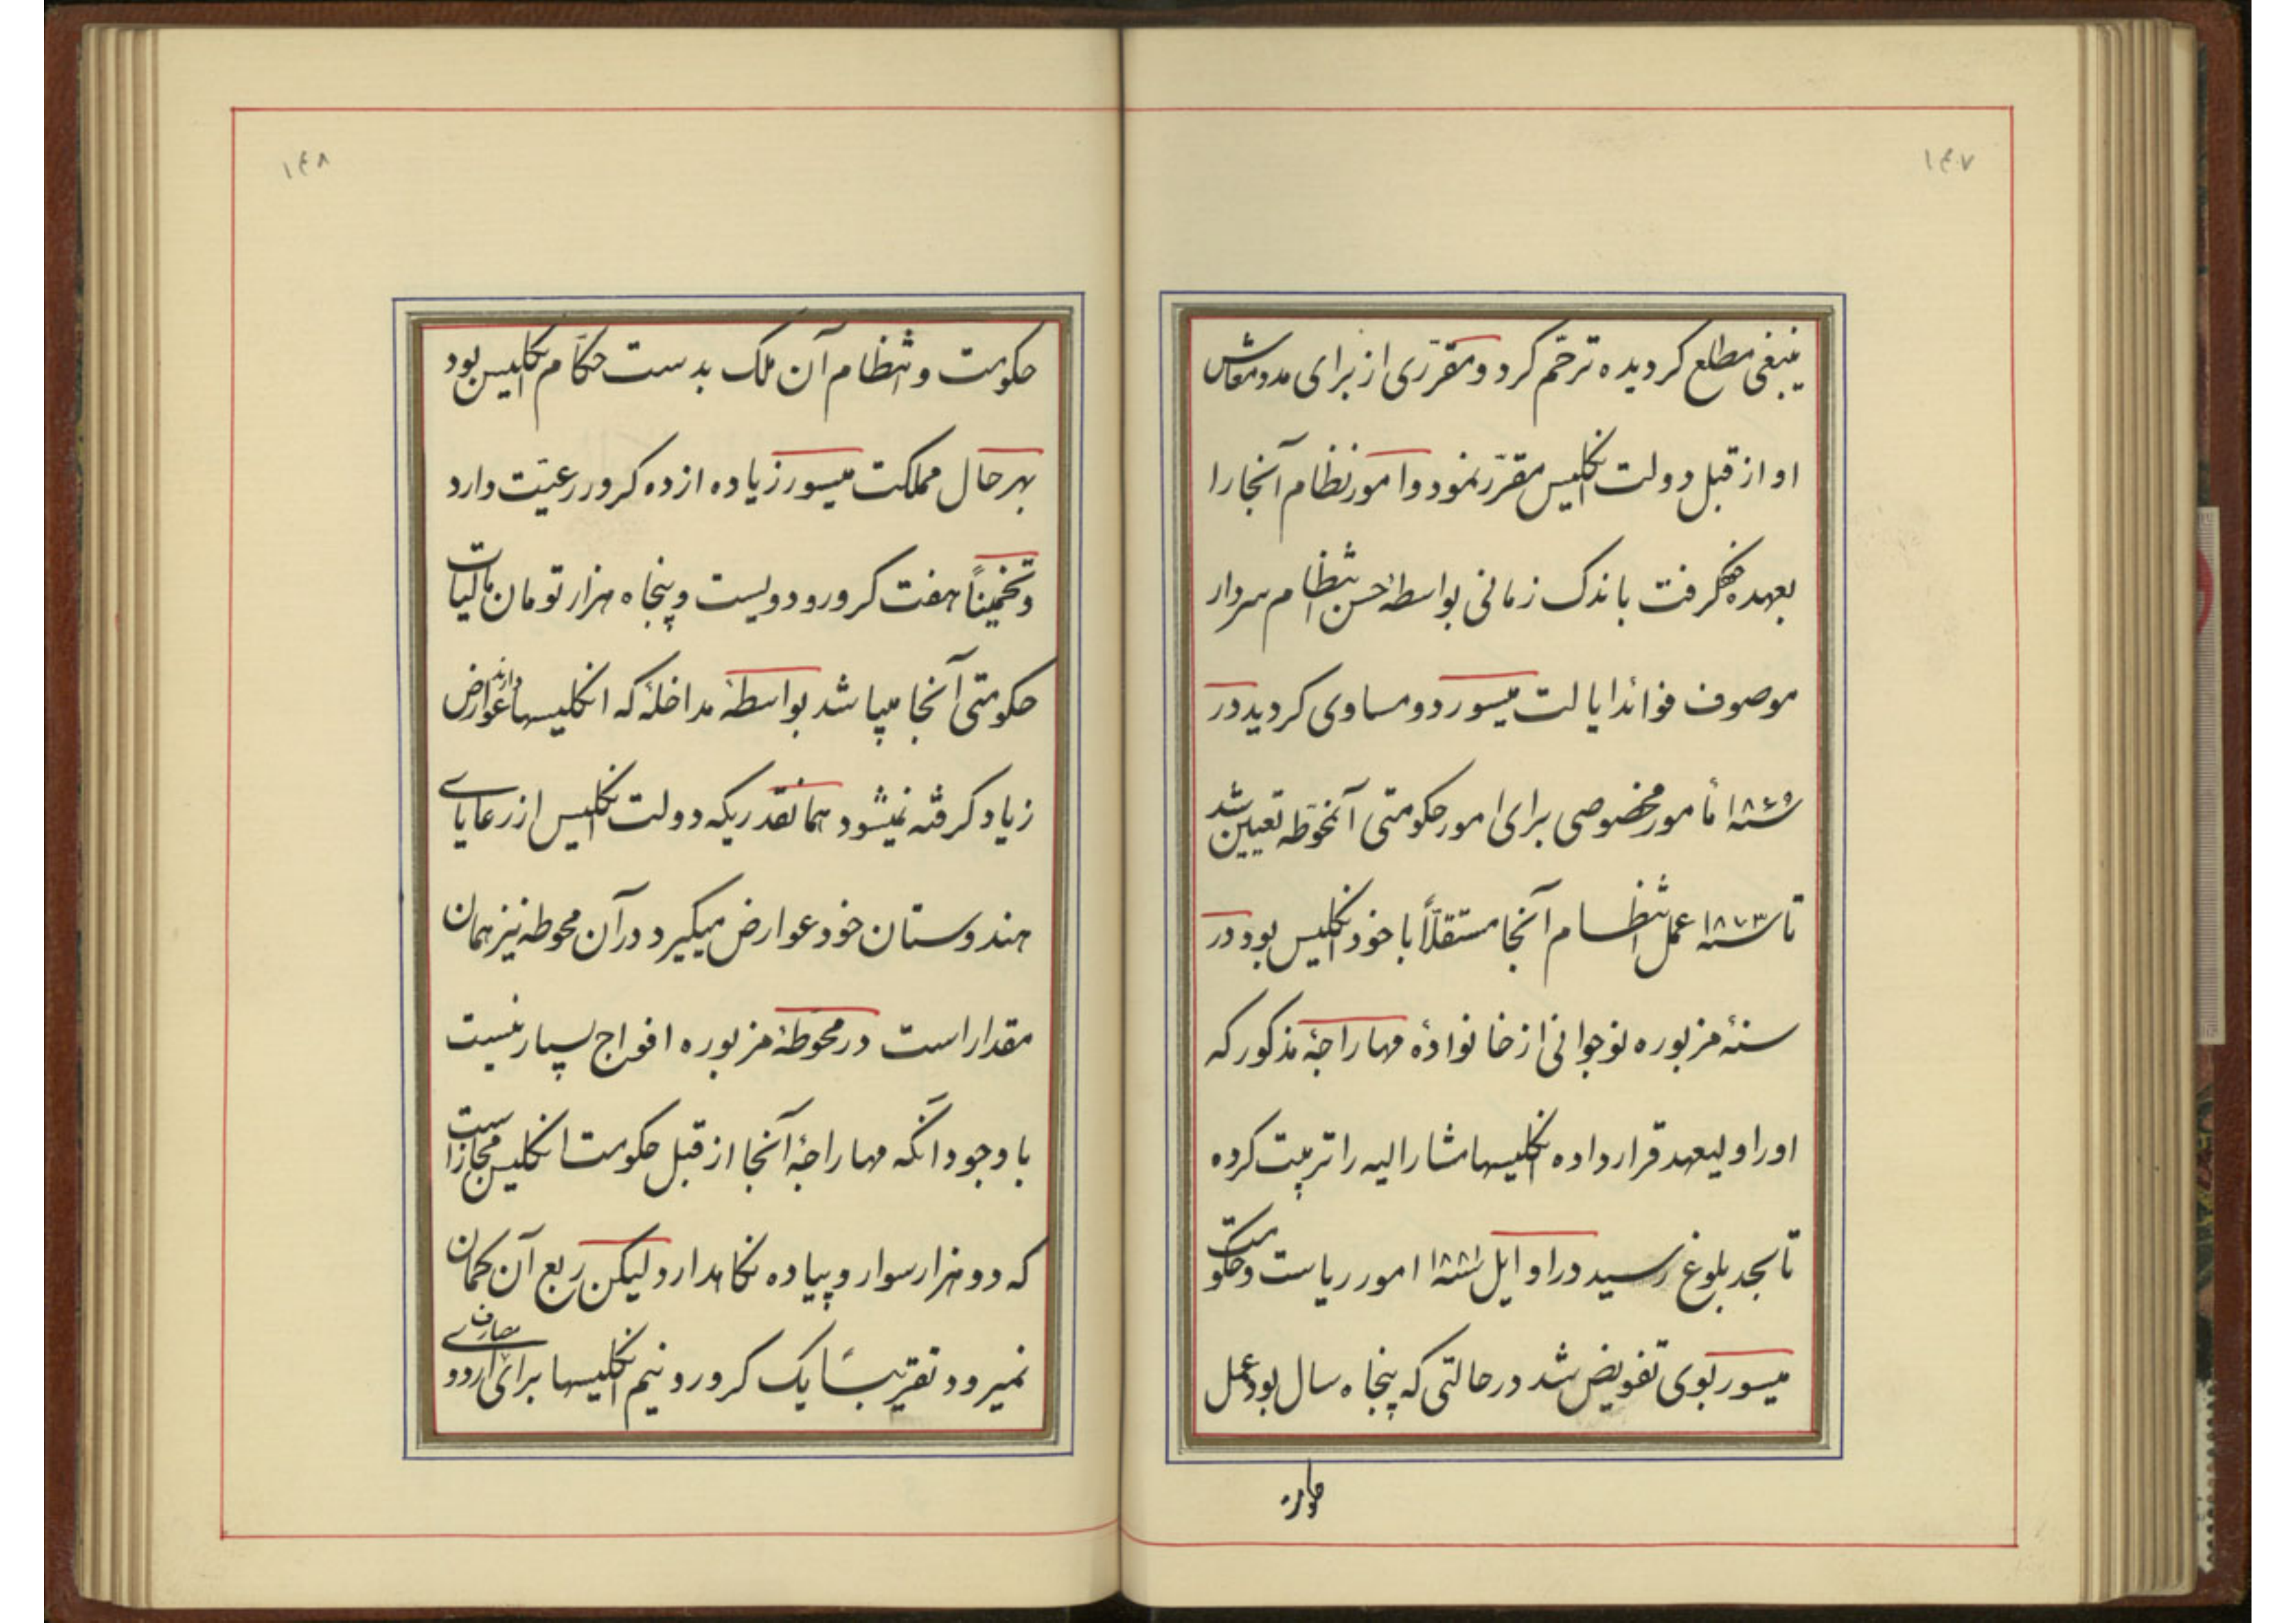 ۱۴۷
ینبغی مطلع کردیده ترحّم کرد و مقرّری از برای مدد معاش
او از قبل دولت انکلیس مقرّر نمود و امور نظام آنجا را
بعهده گرفت باندک زمانی بواسطهٔ حسن انتظام سردار
موصوف فوائد ایالت میسور دو مساوی کردید در
سنه ۱۸۶۵ مأمور مخصوصی برای امور حکومتی آنمحوّطه تعیین شد
تا سنه ۱۸۷۳ عمل انتظام آنجا مستقلّاً با خود انکلیس بود در
سنهٔ مزبوره نوجوانی از خانوادهٔ مهاراجهٔ مذکور که
او را ولیعهد قرار داده انکلیسها مشارالیه را تربیت کرده
تا بحد بلوغ رسید در اوایل سنه ۱۸۸۱ امور ریاست و حکومت
میسور بوی تفویض شد در حالتی که پنجاه سال بود عمل
۱۴۸
حکومت و انتظام آن ملک بدست حکّام انکلیس بود
بهر حال مملکت میسور زیاده از ده کرور رعیّت دارد
و تخمیناً هفت کرور و دویست و پنجاه هزار تومان مالیات
حکومتی آنجا میباشد بواسطهٔ مداخلهٔ که انکلیسها دارند عوارض
زیاد کرفته نمیشود همانقدریکه دولت انکلیس از رعایای
هندوستان خود عوارض میکیرد در آن محوطه نیز همان
مقدار است در محوطهٔ مزبوره افواج بسیار نیست
با وجود انکه مهاراجهٔ آنجا از قبل حکومت انکلیس مجاز است
که دو هزار سوار و پیاده نکاهدارد لیکن ربع آن کمان
نمیرود تقریباً یک کرور و نیم انکلیسها برای مصارف اردوی